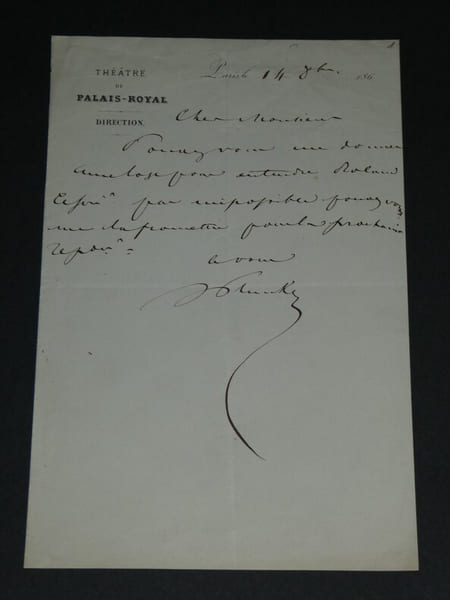 THÉÂTRE
DU
PALAIS-ROYAL
DIRECTION.
Paris le 14 8bre 186
Cher Monsieur
Pouvez vous me donner
une loge pour entendre Roland
par impossible pouvez vous
me la promettre pour la prochaine
repon.
a vous
Plunkett